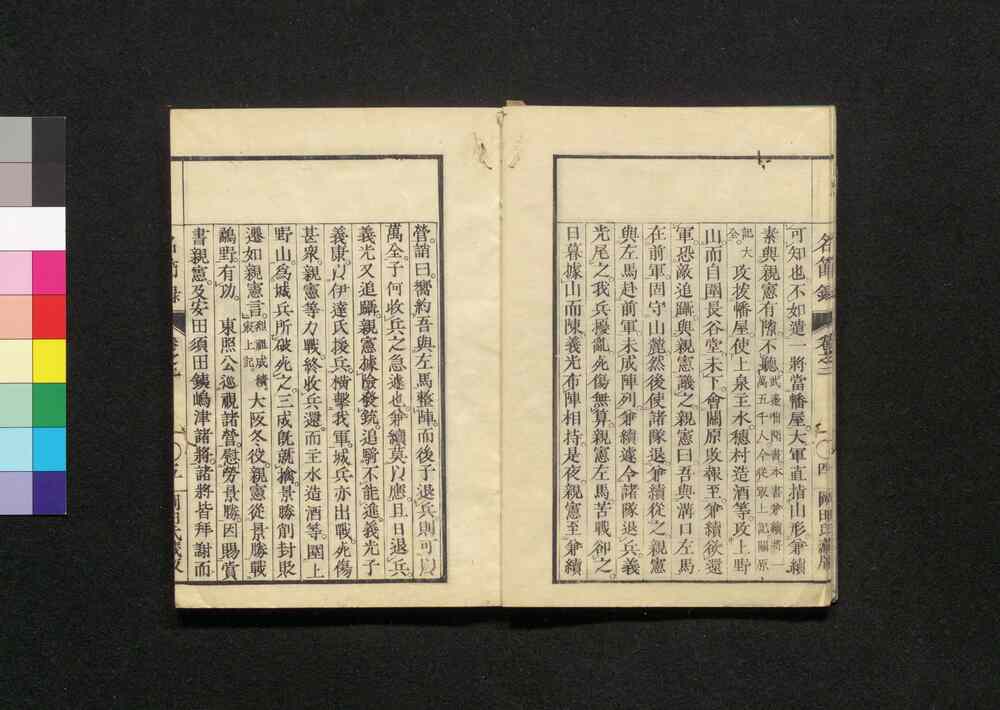 可知也不如遣一將當幡屋大軍直指山形兼續
素與親憲有隙不聽
萬五千人今從家上記關原
記大全
攻拔幡屋使上泉主水穗村造酒等攻上野
山而自圍長谷堂未下會關原敗報至兼續欲還
軍恐敵追躡與親憲議之親憲曰吾與溝口左馬
在前軍固守山麓然後使諸隊退兼續從之親憲
與左馬赴前軍未成陣列兼續遽令諸隊退兵義
光尾之我兵擾亂死傷無算親憲左馬苦戰卻之
日暮據山而陳義光布陣相持是夜親憲至兼續
營誚曰嚮約吾與左馬整陣而後子退兵則可以
萬全子何收兵之急遽也兼續莫以應且日退兵
義光又追躡親憲據險發銃追騎不能進義光子
義康以伊達氏援兵橫擊我軍城兵亦出戰死傷
甚衆親憲等力戰終收兵還而主水造酒等圍上
野山爲城兵所破死之三成旣就擒景勝削封貶
遷如親憲言
大阪冬役親憲從景勝戰
鴫野有功 東照公巡視諸營慰勞景勝因賜賞
書親憲及安田須田鐵嶋津諸將諸將皆拜謝而